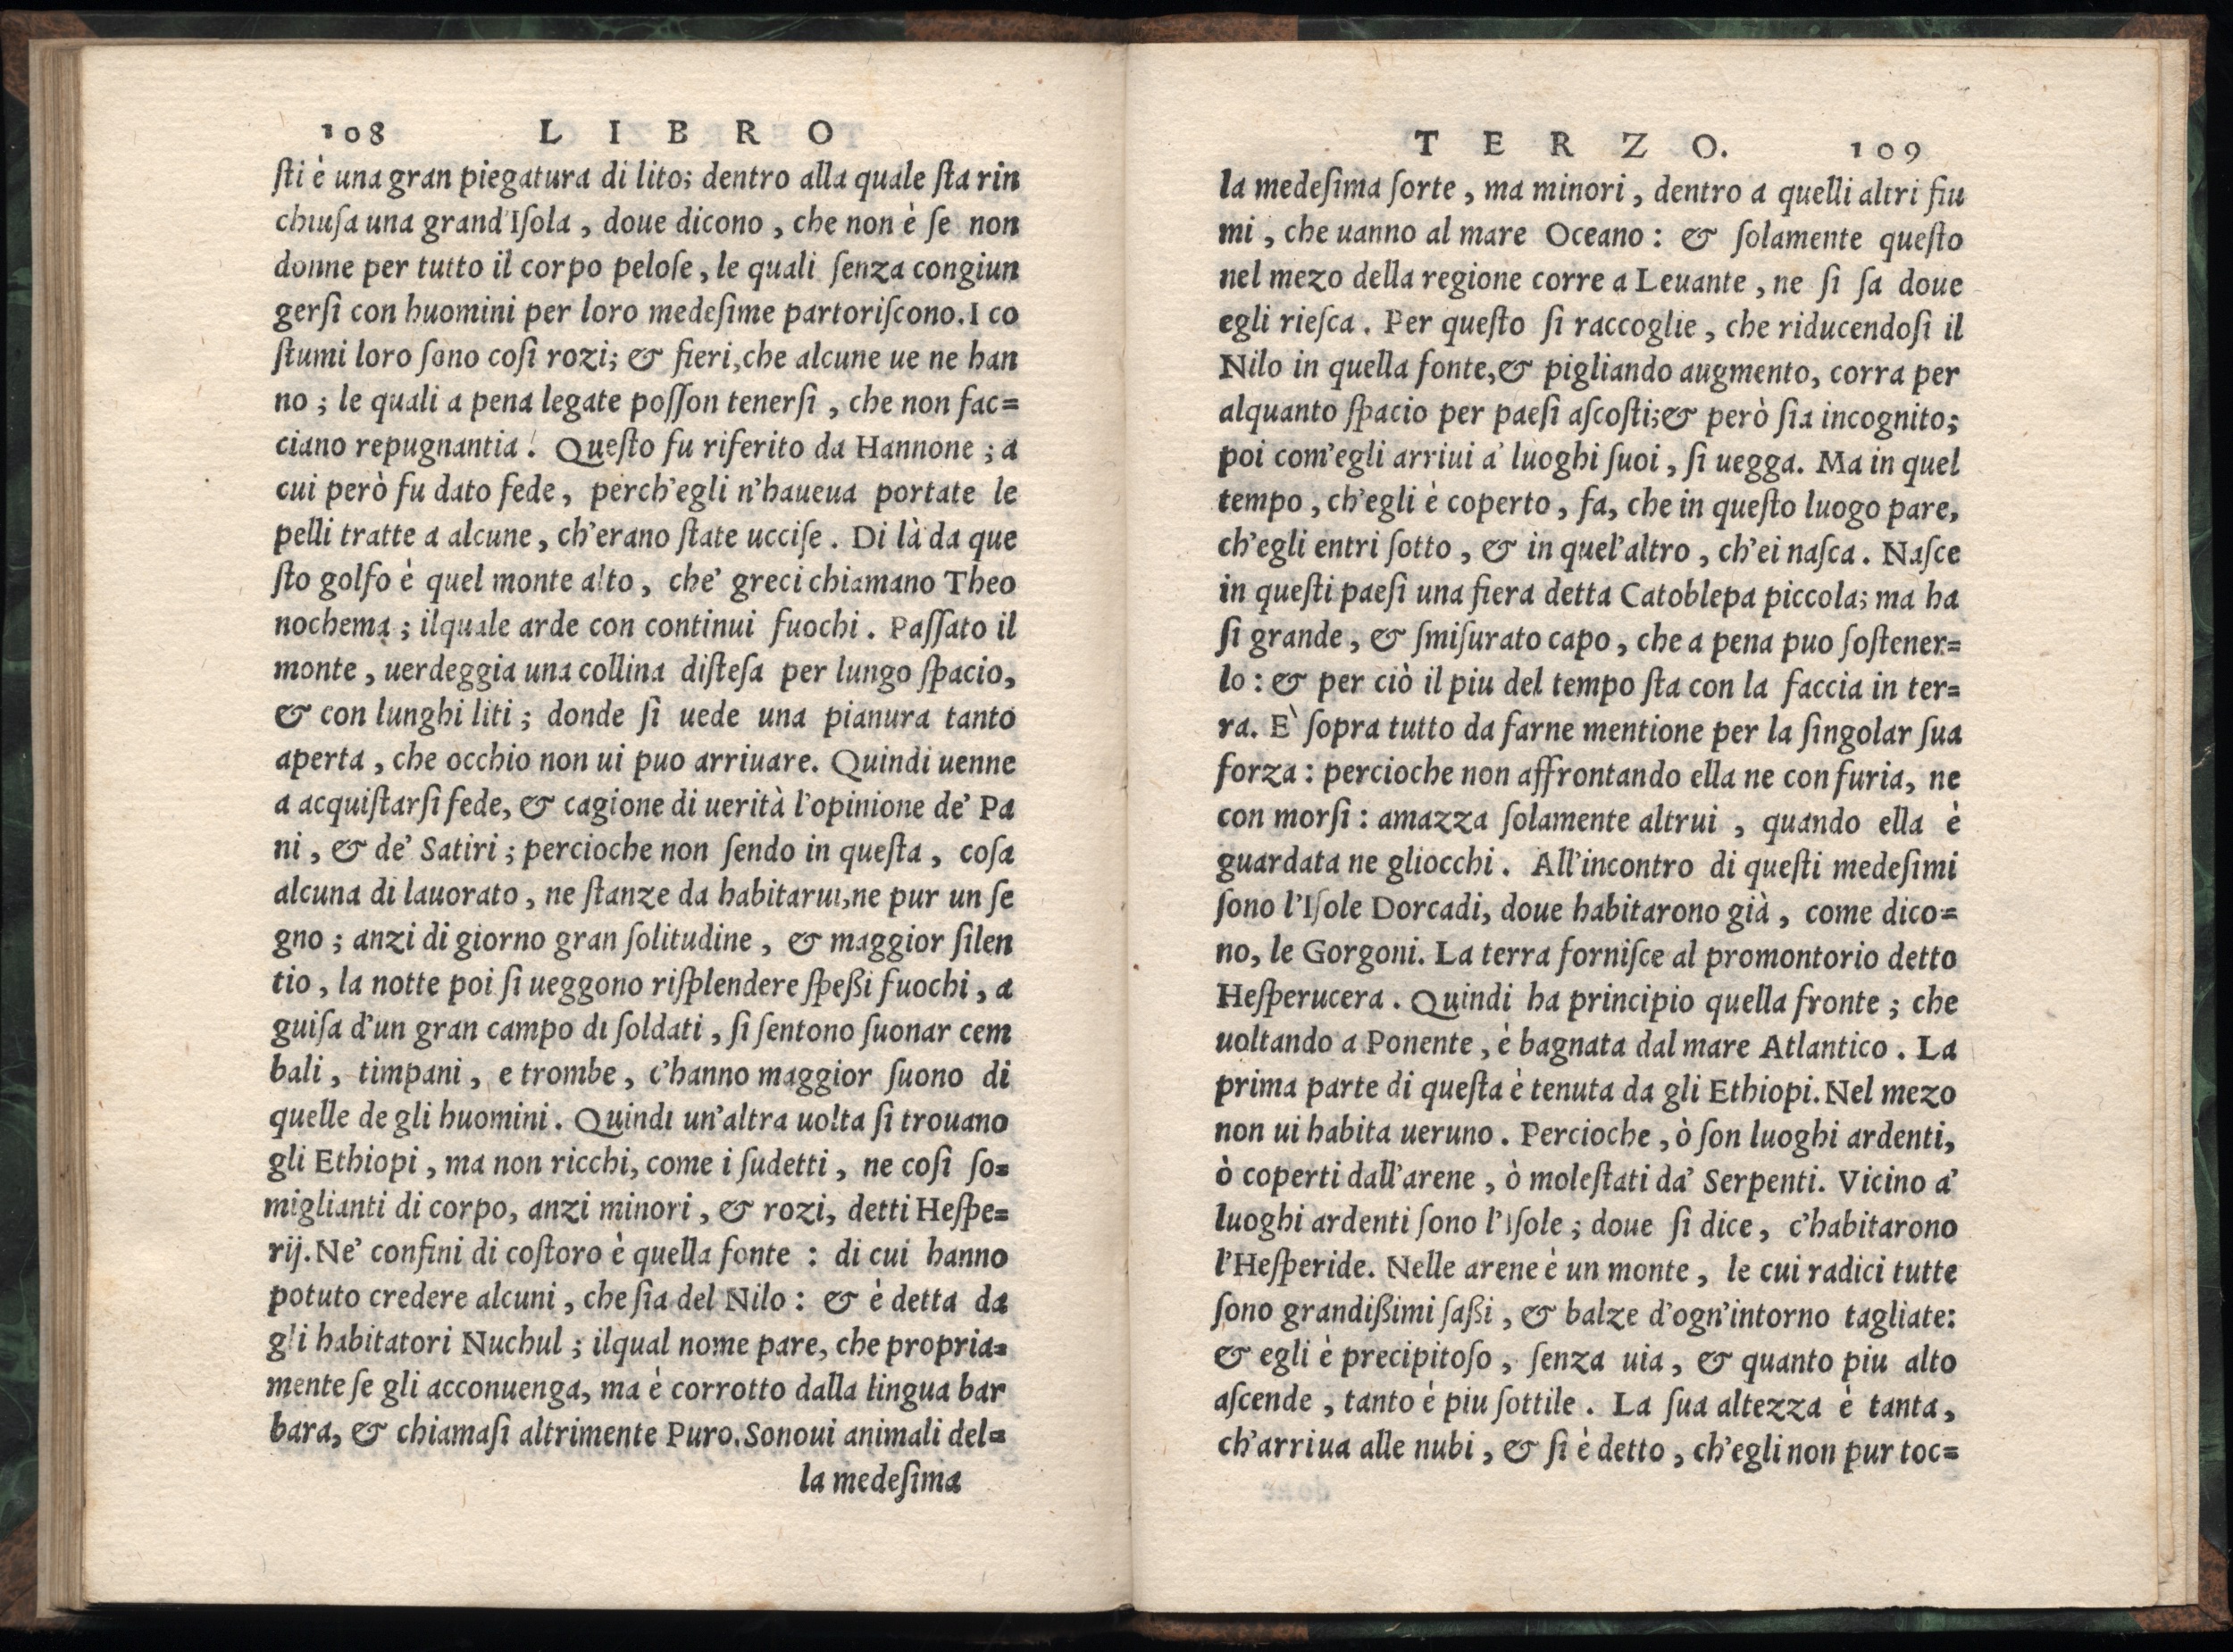 108 LIBRO
ſti è una gran piegatura di lito; dentro alla quale ſta rin
chiuſa una grand'Iſola, doue dicono, che non è ſe non
donne per tutto il corpo peloſe, le quali ſenza congiun
gerſi con huomini per loro medeſime partoriſcono. I co
ſtumi loro ſono coſi rozi; & fieri, che alcune ue ne han
no; le quali a pena legate poſſon tenerſi, che non fac=
ciano repugnantia. Queſto fu riferito da Hannone; a
cui però fu dato fede, perch'egli n'haueua portate le
pelli tratte a alcune, ch'erano ſtate ucciſe. Di là da que
ſto golfo è quel monte alto, che' greci chiamano Theo
nochema; ilquale arde con continui fuochi. Paſſato il
monte, uerdeggia una collina diſteſa per lungo ſpacio,
& con lunghi liti; donde ſi uede una pianura tanto
aperta, che occhio non ui puo arriuare. Quindi uenne
a acquiſtarſi fede, & cagione di uerità l'opinione de' Pa
ni, & de' Satiri; percioche non ſendo in queſta, coſa
alcuna di lauorato, ne ſtanze da habitarui, ne pur un ſe
gno; anzi di giorno gran ſolitudine, & maggior ſilen
tio, la notte poi ſi ueggono riſplendere ſpeßi fuochi, a
guiſa d'un gran campo di ſoldati, ſi ſentono ſuonar cem
bali, timpani, e trombe, c'hanno maggior ſuono di
quelle de gli huomini. Quindi un'altra uolta ſi trouano
gli Ethiopi, ma non ricchi, come i ſudetti, ne coſi ſo=
miglianti di corpo, anzi minori, & rozi, detti Heſpe=
rij. Ne' confini di coſtoro è quella fonte: di cui hanno
potuto credere alcuni, che ſia del Nilo: & è detta da
gli habitatori Nuchul; ilqual nome pare, che propria=
mente ſe gli acconuenga, ma è corrotto dalla lingua bar
bara, & chiamaſi altrimente Puro. Sonoui animali del=
la medeſima
TERZO. 109
la medeſima ſorte, ma minori, dentro a quelli altri fiu
mi, che uanno al mare Oceano: & ſolamente queſto
nel mezo della regione corre a Leuante, ne ſi ſa doue
egli rieſca. Per queſto ſi raccoglie, che riducendoſi il
Nilo in quella fonte, & pigliando augmento, corra per
alquanto ſpacio per paeſi aſcoſti; & però ſia incognito;
poi com'egli arriui a' luoghi ſuoi, ſi uegga. Ma in quel
tempo, ch'egli è coperto, fa, che in queſto luogo pare,
ch'egli entri ſotto, & in quel'altro, ch'ei naſca. Naſce
in queſti paeſi una fiera detta Catoblepa piccola; ma ha
ſi grande, & ſmiſurato capo, che a pena puo ſoſtener=
lo: & per ciò il piu del tempo ſta con la faccia in ter=
ra. E` ſopra tutto da farne mentione per la ſingolar ſua
forza: percioche non affrontando ella ne con furia, ne
con morſi: amazza ſolamente altrui, quando ella è
guardata ne gliocchi. All'incontro di queſti medeſimi
ſono l'Iſole Dorcadi, doue habitarono già, come dico=
no, le Gorgoni. La terra forniſce al promontorio detto
Heſperucera. Quindi ha principio quella fronte; che
uoltando a Ponente, è bagnata dal mare Atlantico. La
prima parte di queſta è tenuta da gli Ethiopi. Nel mezo
non ui habita ueruno. Percioche, ò ſon luoghi ardenti,
ò coperti dall'arene, ò moleſtati da' Serpenti. Vicino a'
luoghi ardenti ſono l'Iſole; doue ſi dice, c'habitarono
l'Heſperide. Nelle arene è un monte, le cui radici tutte
ſono grandißimi ſaßi, & balze d'ogn'intorno tagliate:
& egli è precipitoſo, ſenza uia, & quanto piu alto
aſcende, tanto è piu ſottile. La ſua altezza è tanta,
ch'arriua alle nubi, & ſi è detto, ch'egli non pur toc=